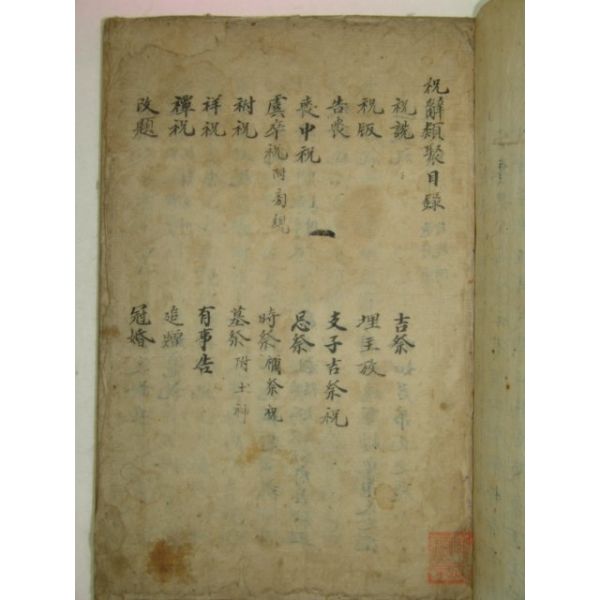 祝辭類聚目錄
祝說
祝版
告喪
喪中祝
虞卒祝 附
祔祝
祥祝
禫祝
改題
吉祭
埋主
支子吉祭祝
忌祭
時祭 禰祭祝
墓祭 附土神
有事告
追贈
冠婚